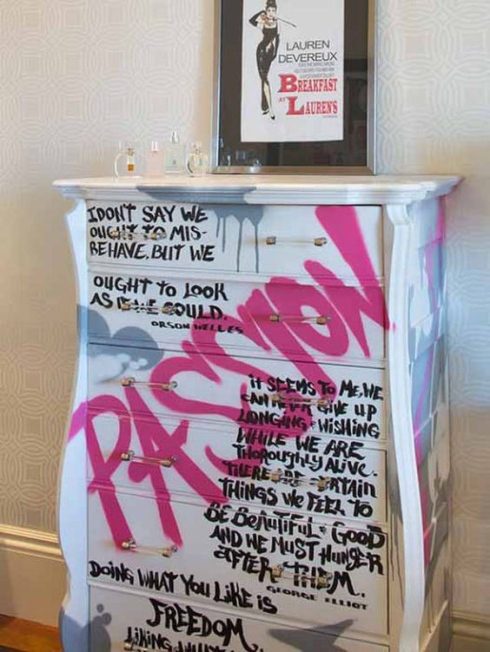 LAUREN
DEVEREUX
BREAKFAST
AT LAUREN'S
I DON'T SAY WE
OUGHT TO MIS-
BEHAVE, BUT WE
OUGHT TO LOOK
AS IF WE COULD.
ORSON WELLES
PASSION
IT SEEMS TO ME, WE
CAN NEVER GIVE UP
LONGING + WISHING
WHILE WE ARE
THOROUGHLY ALIVE.
THERE ARE CERTAIN
THINGS WE FEEL TO
BE BEAUTIFUL + GOOD
AND WE MUST HUNGER
AFTER THEM.
GEORGE ELLIOT
DOING WHAT YOU LIKE IS
FREEDOM
LIKING WHAT